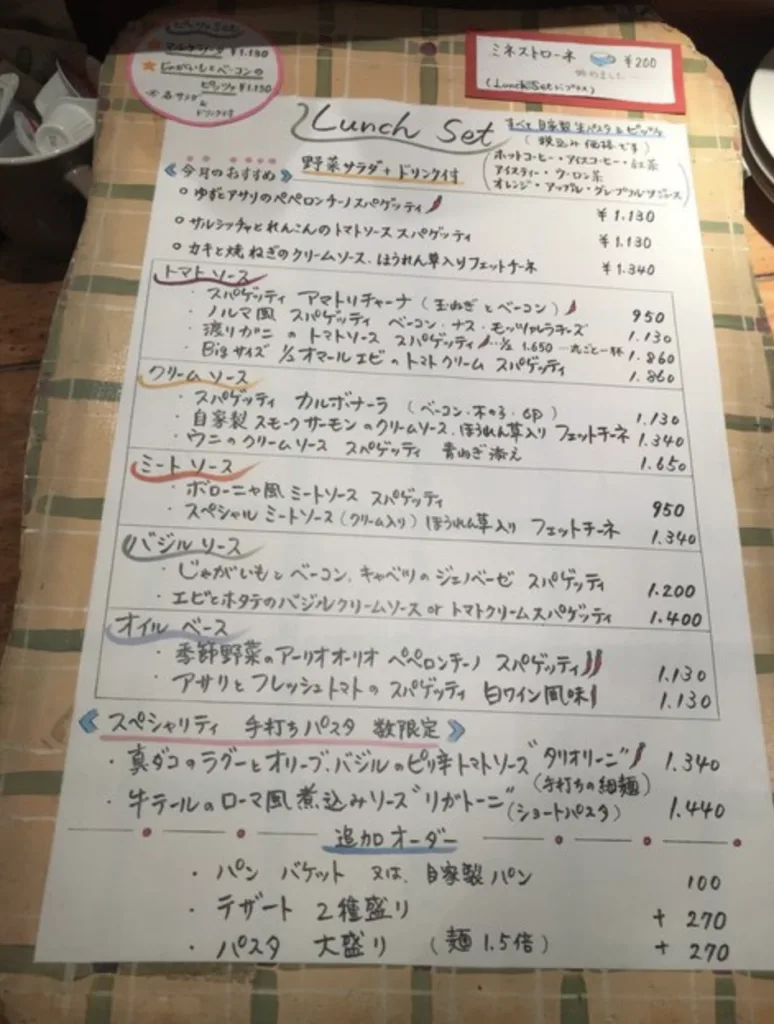 マルゲリータ ¥1.130
★じゃがいもとベーコンの
ピッツァ ¥1.130
各サラダ&
ドリンク付
ミネストローネ ¥200
始めました
(Lunch Setにプラス)
Lunch Set
すべて自家製生パスタ&ピッツァ
(税込み価格です)
《今月のおすすめ》 野菜サラダ+ドリンク付
ホットコーヒー・アイスコーヒー・紅茶
アイスティー・ウーロン茶
オレンジ・アップル・グレープフルーツジュース
○ ゆずとアサリのペペロンチーノスパゲッティ ¥1.130
○ サルシッチャとれんこんのトマトソース スパゲッティ ¥1.130
○ カキと焼ねぎのクリームソース、ほうれん草入りフェットチーネ ¥1.340
トマトソース
・スパゲッティ アマトリチャーナ (玉ねぎとベーコン) 950
・ノルマ風 スパゲッティ ベーコン・ナス・モッツァレラチーズ 1.130
・渡りガニのトマトソース スパゲッティ …1/2 1.650 …丸ごと一杯 1.860
・Bigサイズ 1/2オマールエビのトマトクリーム スパゲッティ 1.860
クリームソース
・スパゲッティ カルボナーラ (ベーコン・木の子・卵) 1.130
・自家製スモークサーモンのクリームソース、ほうれん草入り フェットチーネ 1.340
・ウニのクリームソース スパゲッティ 青ねぎ添え 1.650
ミートソース
・ボローニャ風ミートソース スパゲッティ 950
・スペシャルミートソース(クリーム入り)ほうれん草入り フェットチーネ 1.340
バジルソース
・じゃがいもとベーコン、キャベツのジェノベーゼ スパゲッティ 1.200
・エビとホタテのバジルクリームソース or トマトクリームスパゲッティ 1.400
オイルベース
・季節野菜のアーリオオーリオ ペペロンチーノ スパゲッティ 1.130
・アサリとフレッシュトマトの スパゲッティ 白ワイン風味 1.130
《スペシャリティ 手打ちパスタ 数限定》
・真ダコのラグーとオリーブ、バジルのピリ辛トマトソース"タリオリーニ" 1.340
(手打ちの細麺)
・牛テールのローマ風煮込みソース"リガトーニ"(ショートパスタ) 1.440
追加オーダー
・パン バケット 又は、自家製パン 100
・デザート 2種盛り +270
・パスタ 大盛り (麺1.5倍) +270